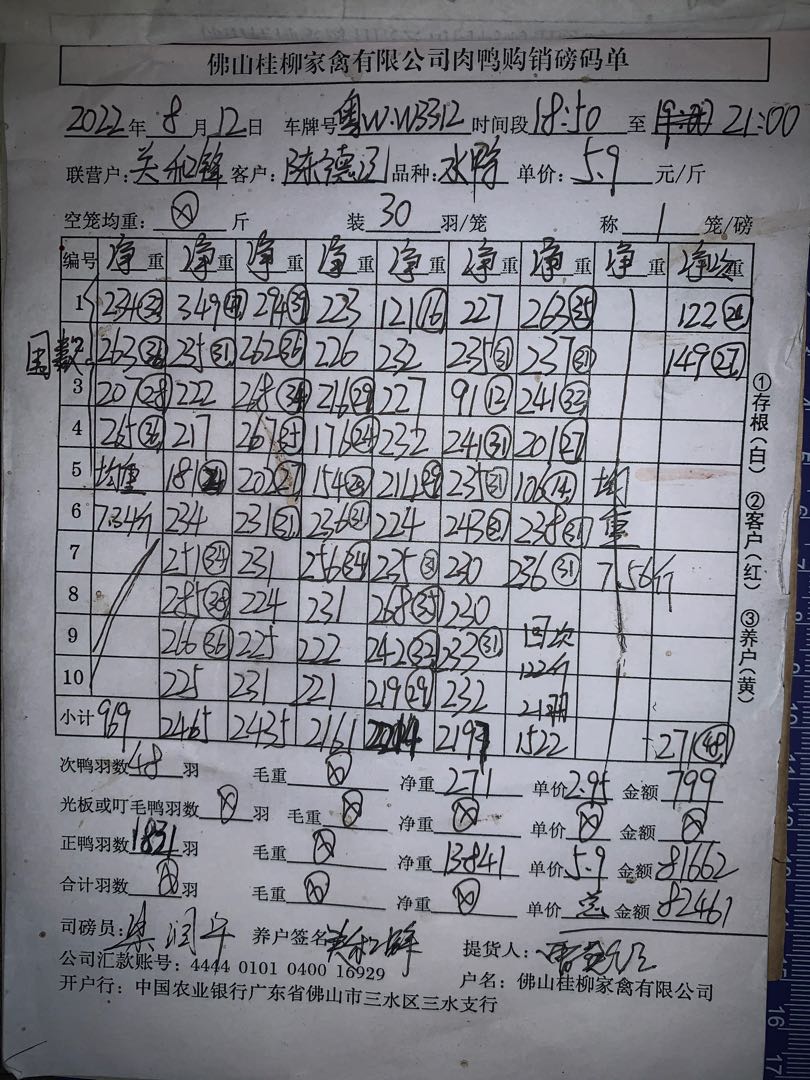 佛山桂柳家禽有限公司肉鸭购销磅码单
2022年 8 月 12 日 车牌号 粤W·W3312 时间段 18:50 至 21:00
联营户: 关和锋 客户: 陈德 品种: 水鸭 单价: 5.9 元/斤
空笼均重: ⊗ 斤 装 30 羽/笼 称 1 笼/磅
编号 净重 净重 净重 净重 净重 净重 净重 净重 净次重
1 234 349 294(39) 223 121(16) 227 263(35) 122(21)
回数 2 263(36) 235(31) 262(36) 226 232 235(31) 237(31) 149(27)
3 207(28) 222 268(34) 216(29) 227 91(12) 241(32)
4 265(36) 217 267(35) 176(24) 232 241(31) 201(27)
5 均重 181(24) 202(27) 154 214(29) 235(31) 106(14) 均
6 7.34斤 234 231(31) 236(31) 224 243(31) 238(31) 重
7 251(34) 231 256(34) 235(31) 230 236(31) 7.56斤
8 285(38) 224 231 268(35) 230
9 266(36) 225 222 242(32) 233(31) 回次
10 225 231 221 219(29) 232 122斤
21羽
小计 969 2465 2435 2161 2214 2197 1522 271(48)
次鸭羽数 48 羽 毛重 ⊗ 净重 271 单价 2.95 金额 799
光板或叮毛鸭羽数 ⊗ 羽 毛重 ⊗ 净重 ⊗ 单价 ⊗ 金额 ⊗
正鸭羽数 1831 羽 毛重 ⊗ 净重 13841 单价 5.9 金额 81662
合计羽数 ⊗ 羽 毛重 ⊗ 净重 ⊗ 单价 总 金额 82461
司磅员: 养户签名 关和锋 提货人:
公司汇款账号: 4444 0101 0400 16929 户名: 佛山桂柳家禽有限公司
开户行: 中国农业银行广东省佛山市三水区三水支行
①存根(白) ②客户(红) ③养户(黄)